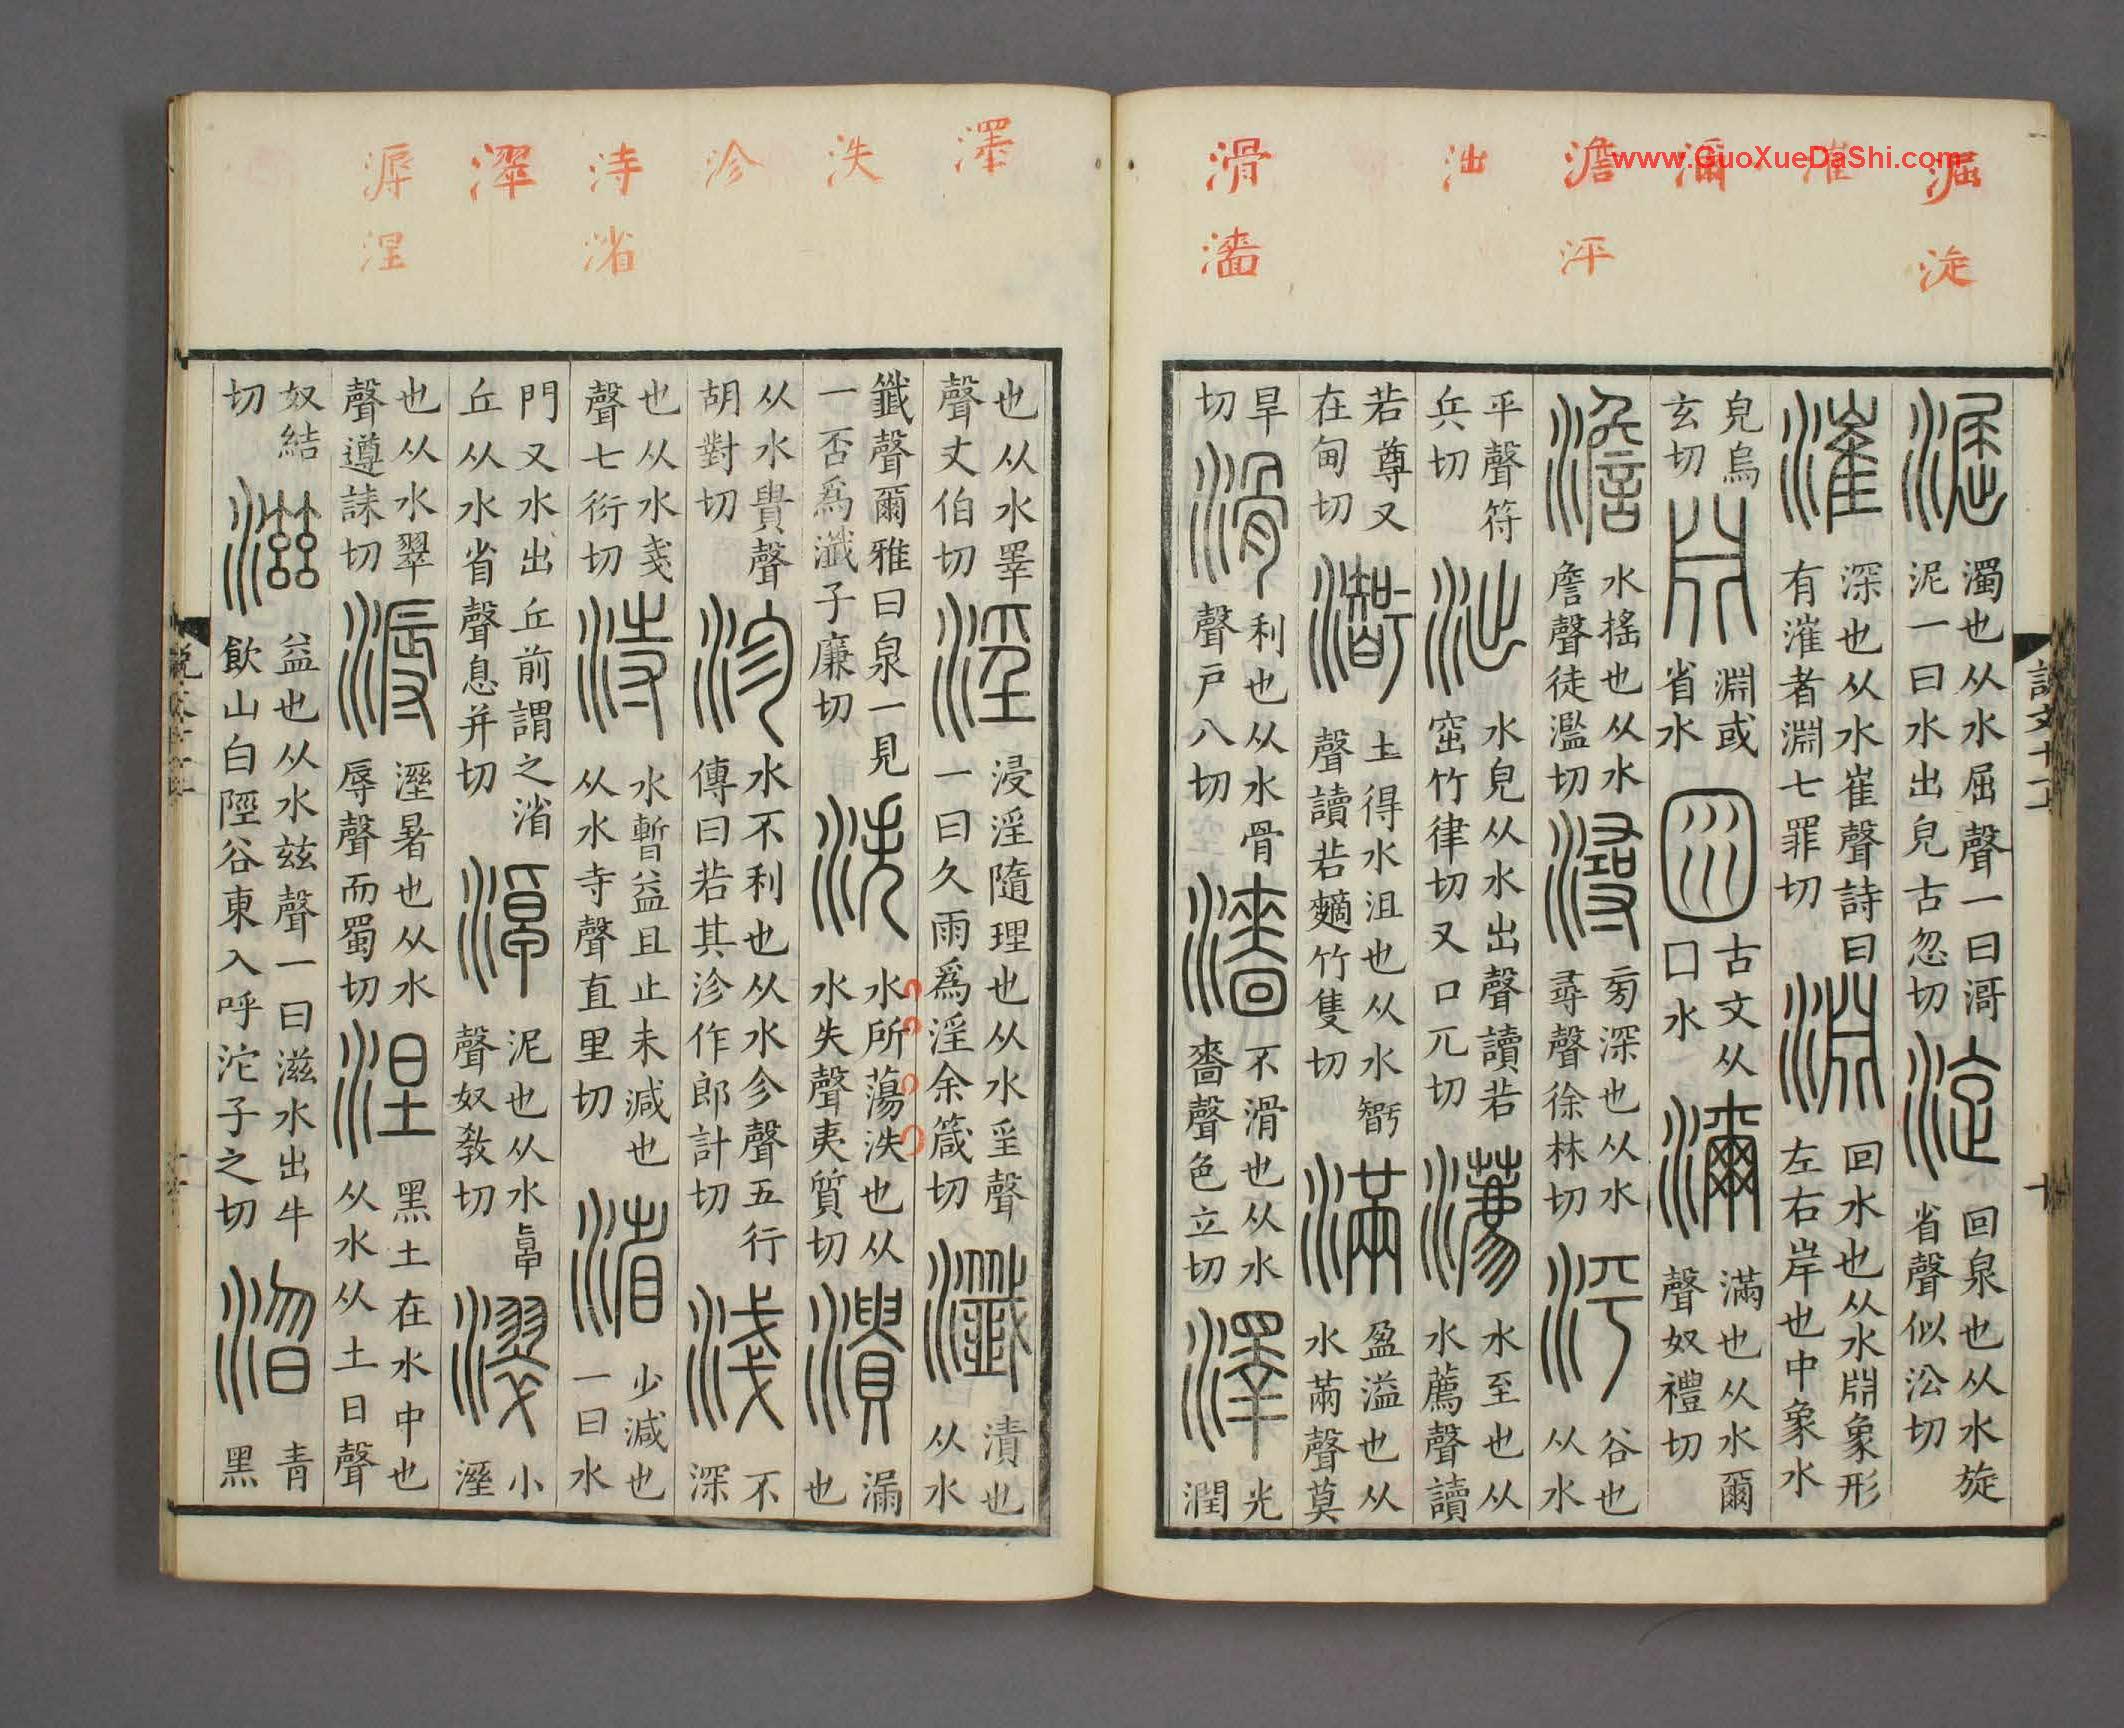 www.GuoXueDaShi.com
淈 淀
漼
濔
澹 泙
泏
滑 濇
淈濁也从水屈聲一曰滒泥一曰水出皃古忽切淀回泉也从水旋省聲似㳂切
漼深也从水崔聲詩曰有漼者淵七罪切淵回水也从水𣶒象形左右岸也中象水
皃烏玄切𣶒淵或省水囦古文从囗水濔滿也从水爾聲奴禮切
澹水搖也从水詹聲徒濫切潯㫄深也从水尋聲徐林切泙谷也从水
平聲符兵切泏水皃从水出聲讀若窋竹律切又口兀切瀳水至也从水薦聲讀
若尊又在甸切土得水沮也从水𥏼聲讀若麱竹隻切滿盈溢也从水㒼聲莫
旱切滑利也从水骨聲戶八切濇不滑也从水嗇聲色立切澤光潤
說文十一上 十
澤
泆
沴
洔 渻
濢
溽 涅
也从水睪聲丈伯切淫浸淫隨理也从水㸒聲一曰久雨爲淫余箴切瀸漬也从水
韱聲爾雅曰泉一見一否爲瀸子廉切泆水所蕩泆也从水失聲夷質切潰漏也
从水貴聲胡對切沴水不利也从水㐱聲五行傳曰若其沴作郎計切淺不深
也从水戔聲七衍切洔水暫益且止未減也从水寺聲直里切渻少減也一曰水
門又水出丘前謂之渻丘从水省聲息并切淖泥也从水卓聲奴敎切濢小溼
也从水翠聲遵誄切溽溼暑也从水辱聲而蜀切涅黑土在水中也从水从土日聲
奴結切滋益也从水兹聲一曰滋水出牛飮山白陘谷東入呼沱子之切青黑